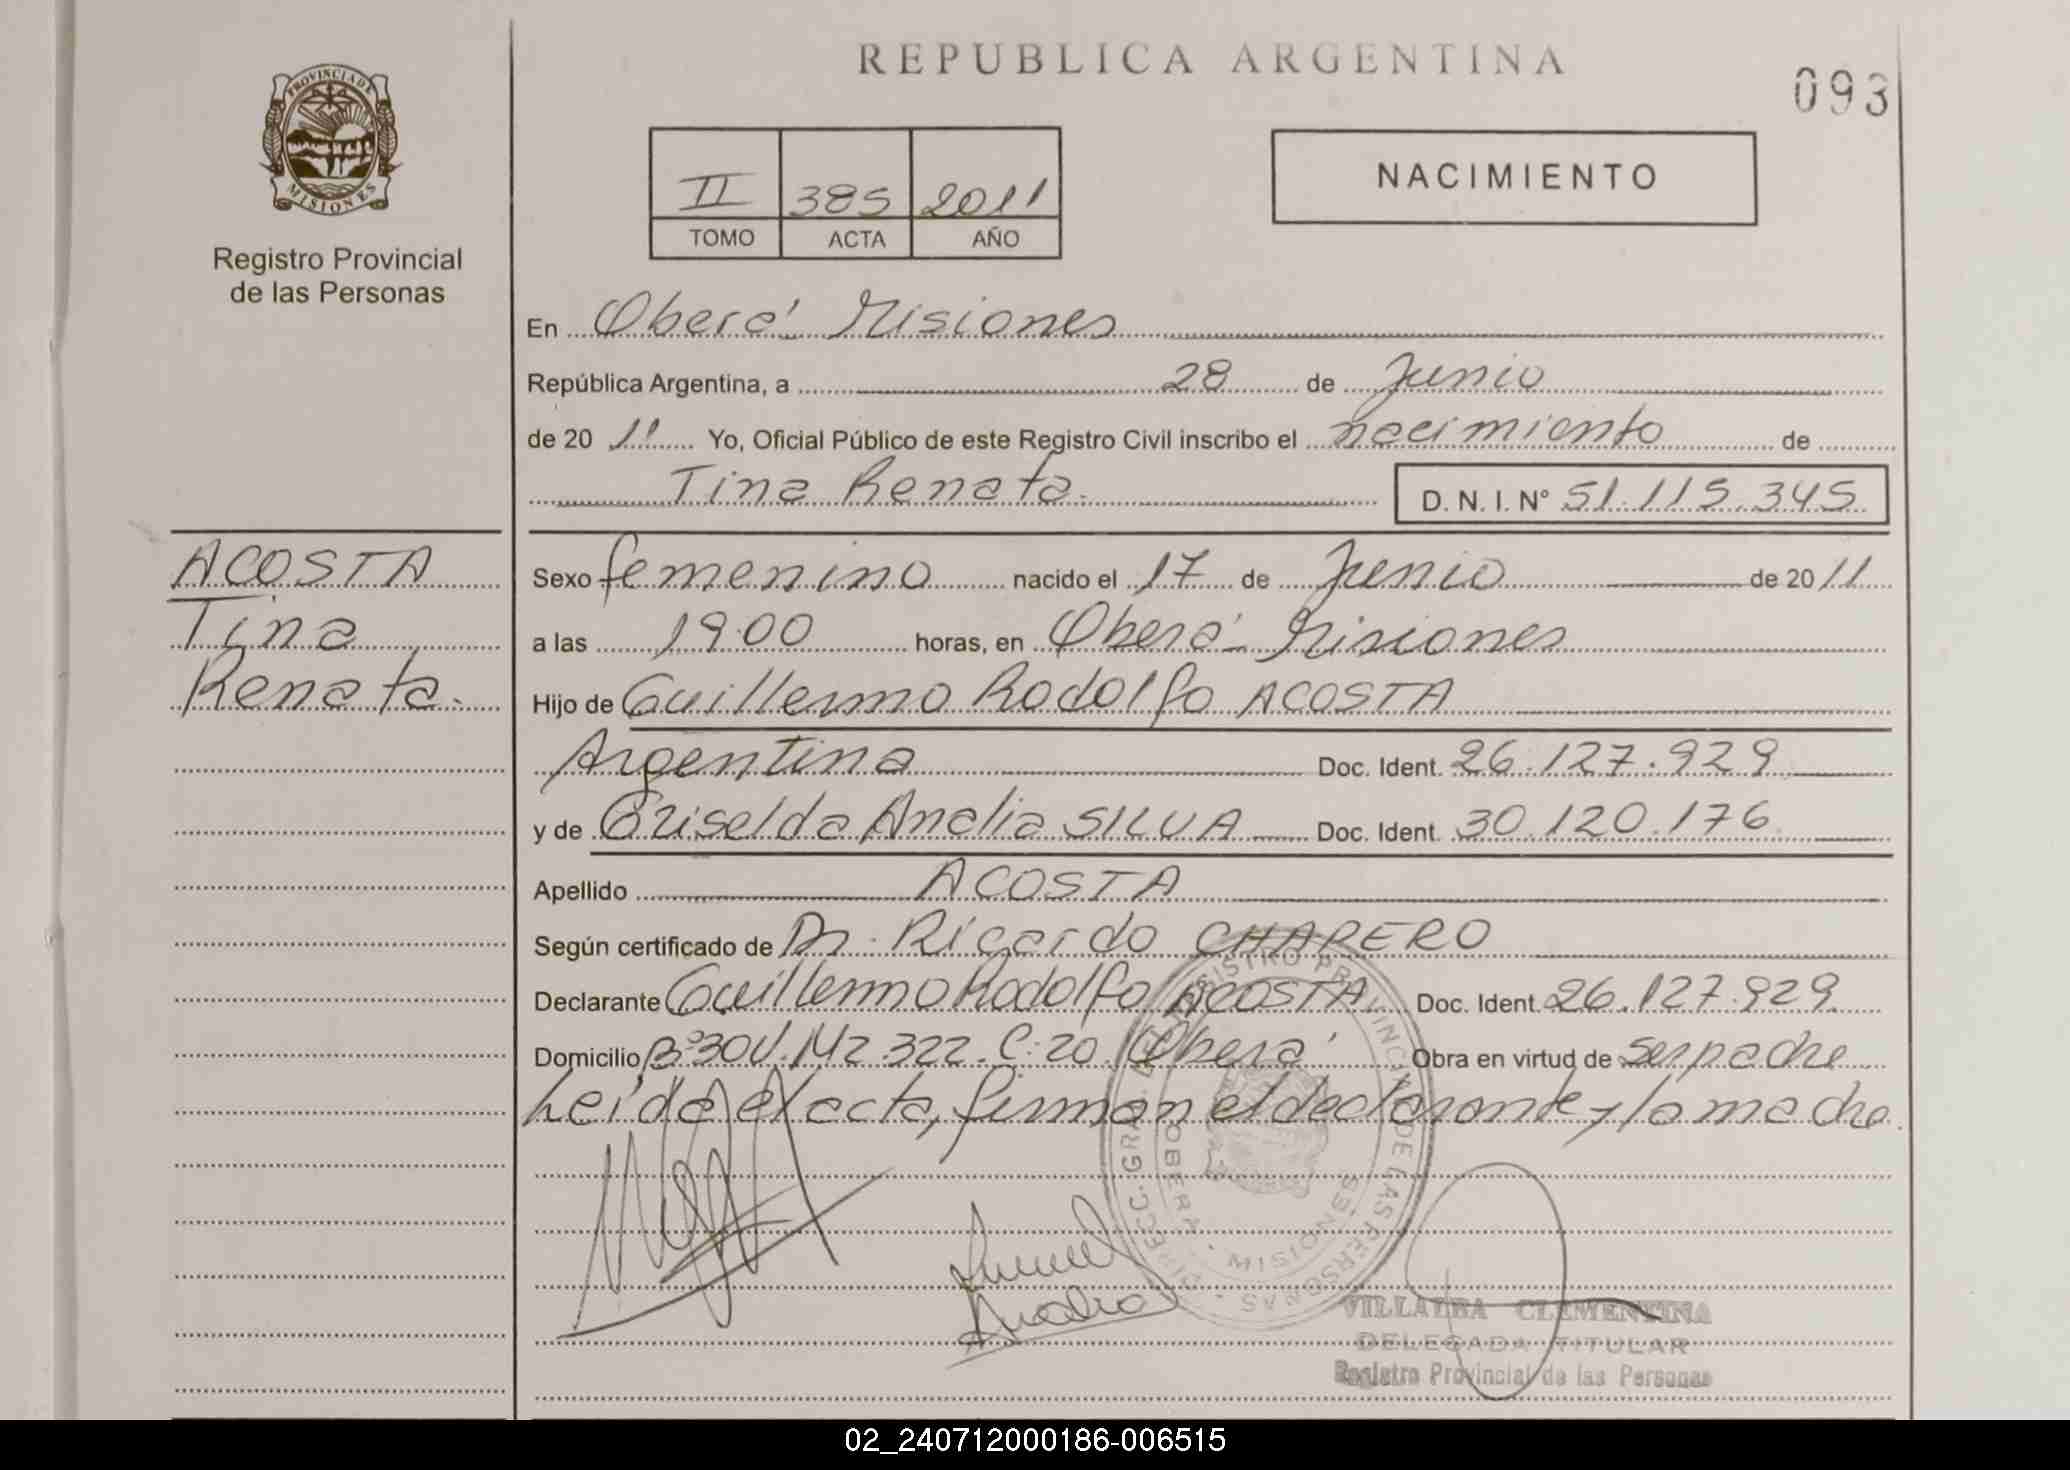 REPUBLICA ARGENTINA
093
PROVINCIA DE
MISIONES
Registro Provincial
de las Personas
II 385 2011
TOMO ACTA AÑO
NACIMIENTO
En Oberá Misiones
República Argentina, a 28 de Junio
de 20 11 Yo, Oficial Público de este Registro Civil inscribo el nacimiento de
Tina Renata. D. N. I. N° 51.115.345
ACOSTA
Tina
Renata.
Sexo femenino nacido el 17 de Junio de 20 11
a las 19:00 horas, en Oberá - Misiones
Hijo de Guillermo Rodolfo ACOSTA
Argentina Doc. Ident. 26.127.929
y de Griselda Analia SILVA Doc. Ident. 30.120.176
Apellido ACOSTA
Según certificado de Dr. Ricardo CHAPERO
Declarante Guillermo Rodolfo ACOSTA Doc. Ident. 26.127.929
Domicilio B° 30V. Mz 322. C: 20. Oberá Obra en virtud de ser padre
Leída el acta, firman el declarante y la madre.
DIRECC. GRAL. DEL REGISTRO PROVINCIAL DE LAS PERSONAS
OBERÁ - MISIONES
VILLALBA CLEMENTINA
DELEGADA TITULAR
Registro Provincial de las Personas
02_240712000186-006515